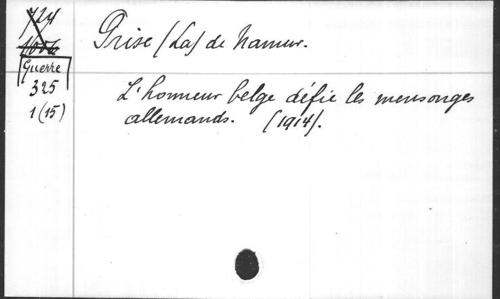 724
Prise (La) de Namur.
Guerre
325
1(15)
L'honneur belge défie les mensonges
allemands. (1914).